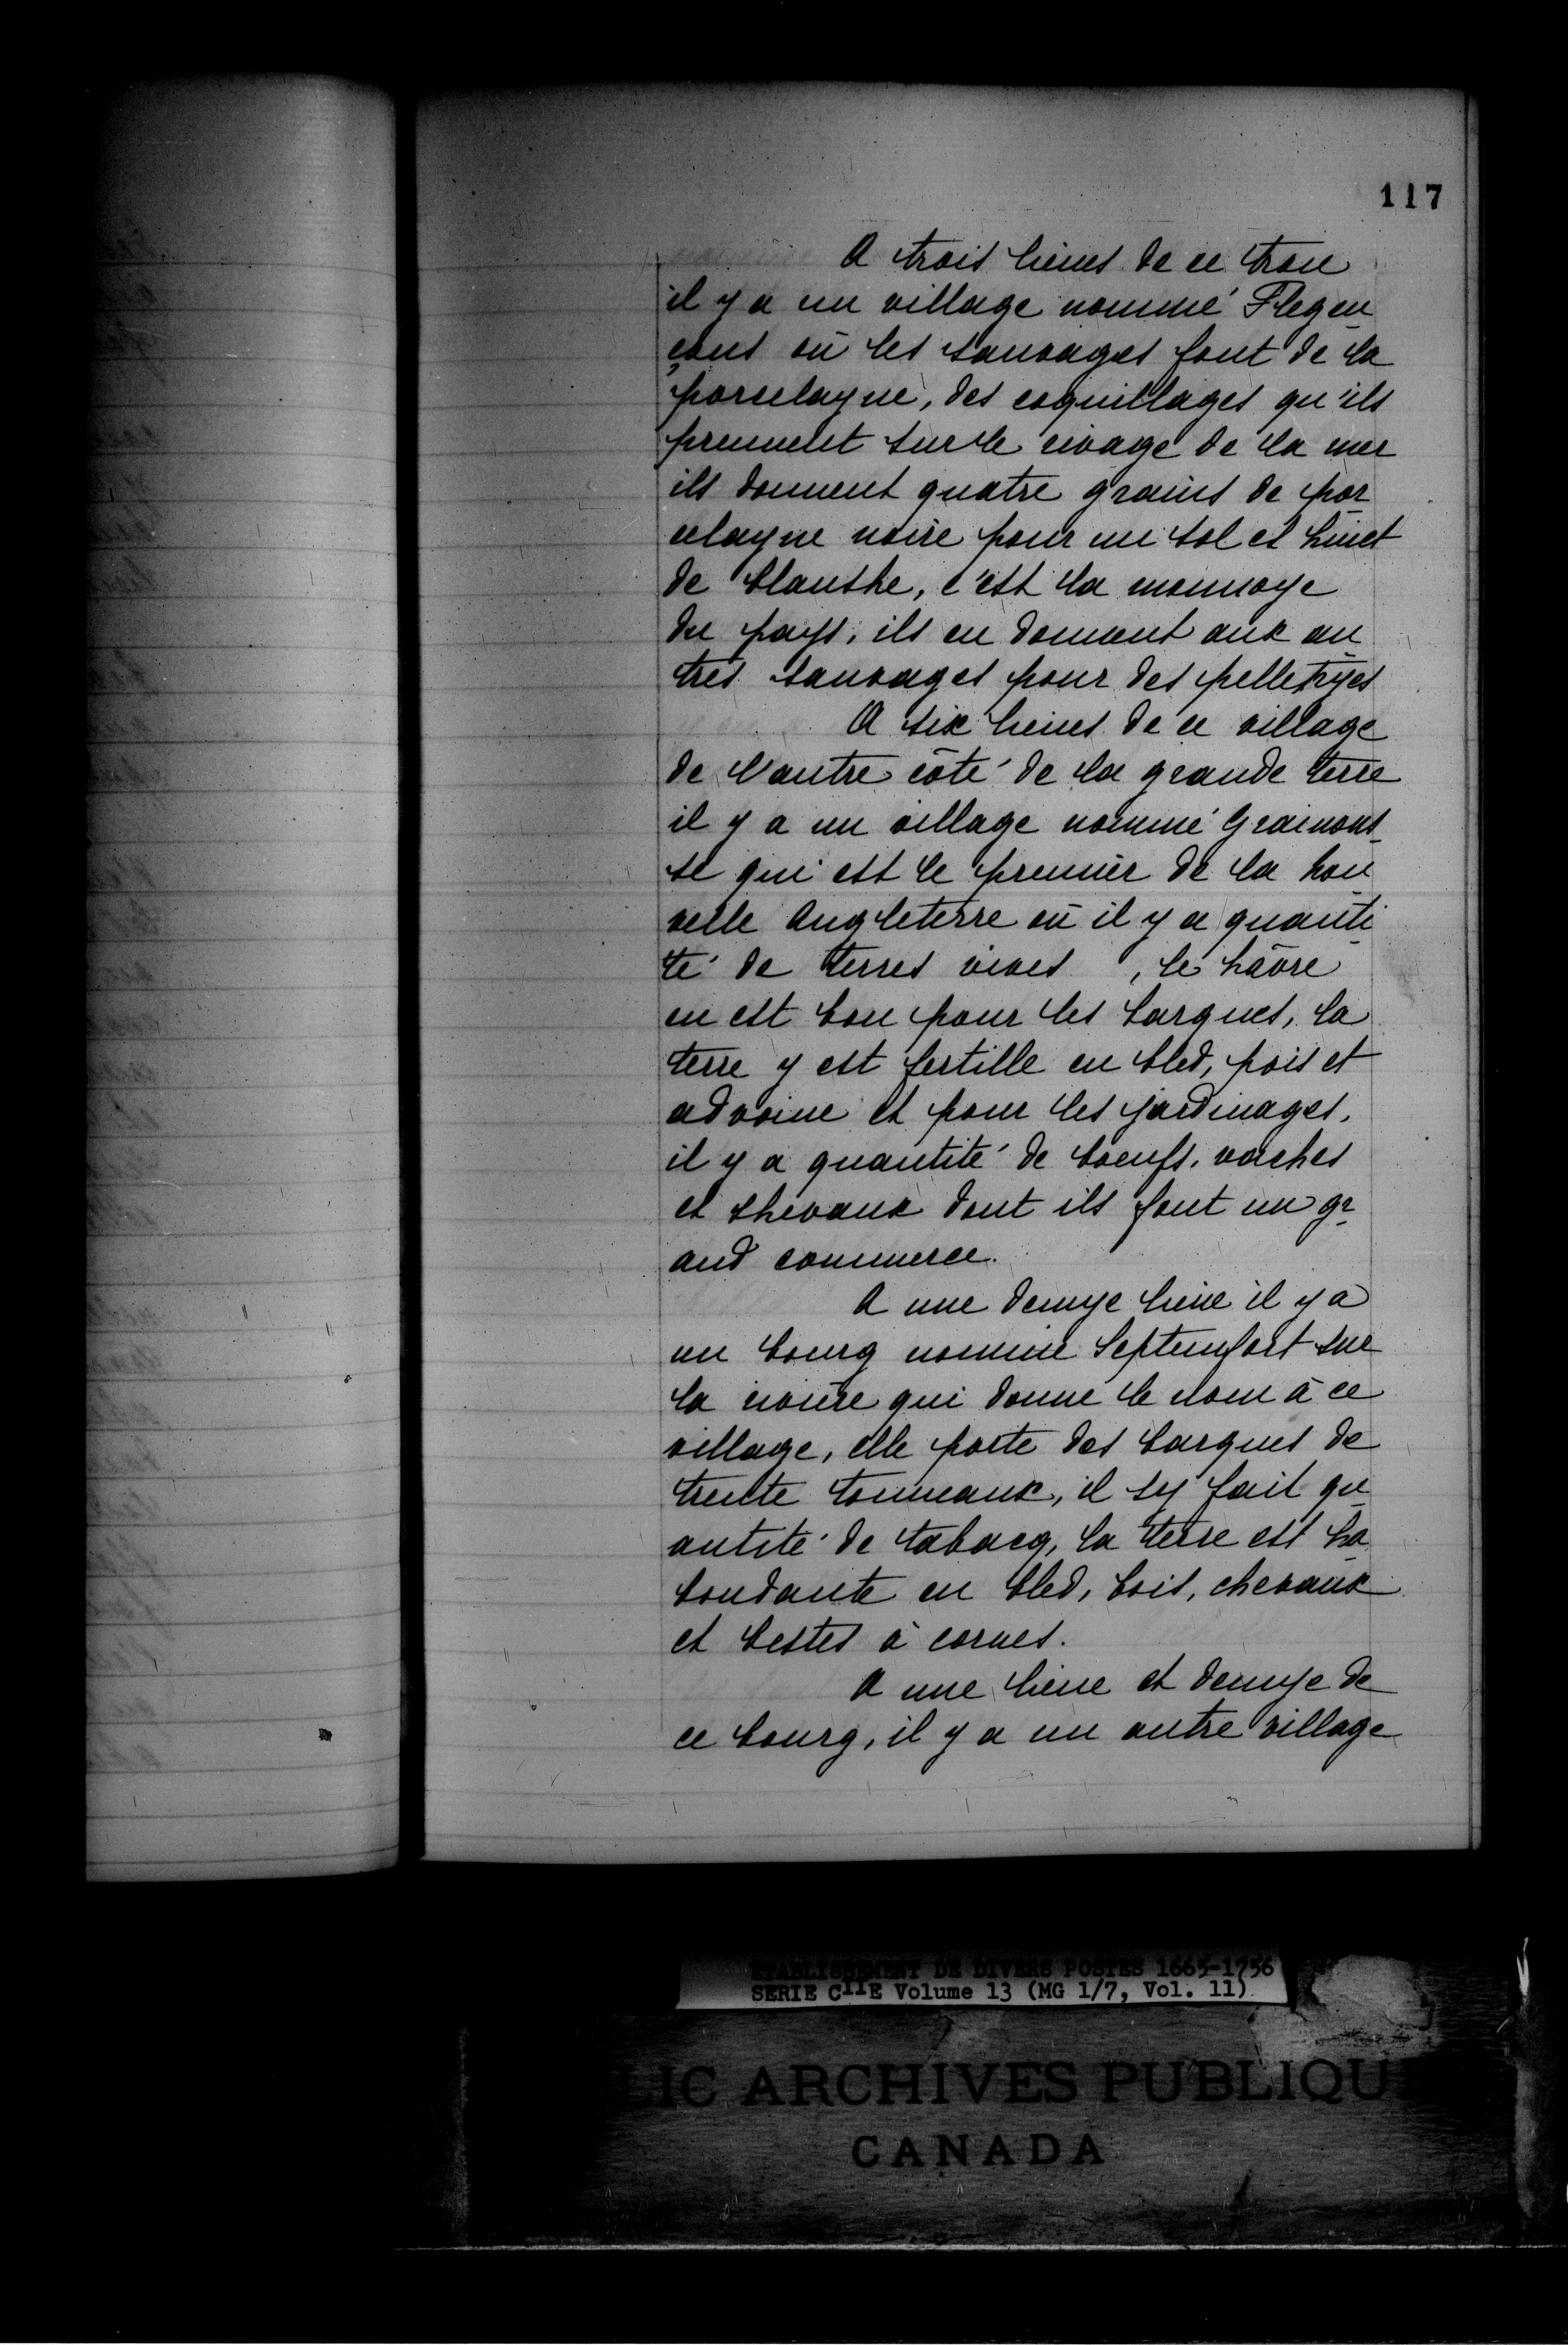 117
A trois lieues de ce trou
il y a un village nommé Flegen
çons où les sauvages font de la
porcelayne, des coquillages qu'ils
prennent sur le rivage de la mer
ils donnent quatre grains de por
celayne noire pour un sol et huict
de blanche, c'est la monnoye
du pays, ils en donnent aux au
tres sauvages pour des pelletryes
A six lieues de ce village
de l'autre côté de la grande terre
il y a un village nommé Grainous
se qui est le premier de la nou
velle Angleterre où il y a quanti
té de terres vives , le hâvre
en est bon pour les barques, la
terre y est fertille en bled, pois et
advoine et pour les jardinages,
il y a quantité de boeufs, vaches
et chevaux dont ils font un gr
and commerce.
A une demye lieue il y a
un bourg nommé Septemfort sur
la rivière qui donne le nom à ce
village, elle porte des barques de
trente tonneaux, il sy fait qu
antité de tabacq, la terre est ha
bondante en bled, bois, chevaux
et bestes à cornes.
A une lieue et demye de
ce bourg, il y a un autre village
ETABLISSEMENT DE DIVERS POSTES 1665-1756
SERIE C11E Volume 13 (MG 1/7, Vol. 11)
LIC ARCHIVES PUBLIQU
CANADA